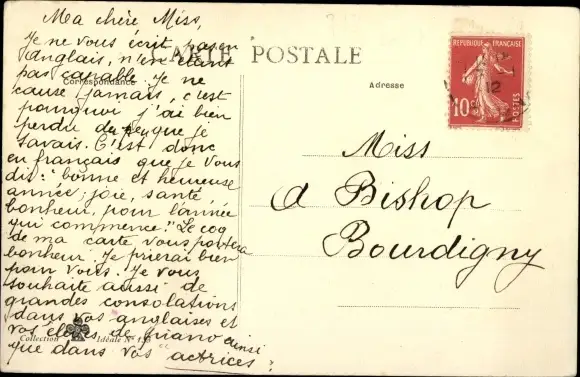 Ma chère Miss,
Je ne vous écrit pas en
anglais, n'en étant
pas capable. Je ne
cause jamais, c'est
pourquoi j'ai bien
perdu du peu que je
savais. C'est donc
en français que je vous
dis: "bonne et heureuse
année; joie, santé,
bonheur, pour l'année
qui commence." Le coq
de ma carte vous portera
bonheur. Je prierai bien
pour vous. Je vous
souhaite aussi de
grandes consolations
dans vos anglaises et
vos élèves de piano ainsi
que dans vos "actrices"
CARTE POSTALE
Correspondance
Adresse
REPUBLIQUE FRANÇAISE
10c
POSTES
12
Miss
A Bishop
Bourdigny
Collection Idéale